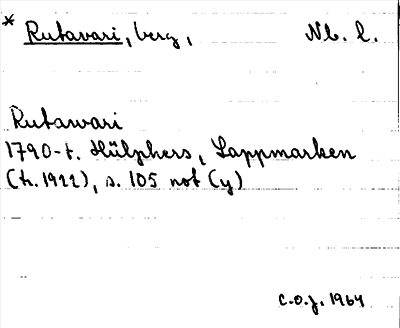 * Rutavari, berg, Nb. l.
Rutawari
1790-t. Hülphers, Lappmarken
(tr. 1922), s. 105 not (y)
C.O.J. 1964